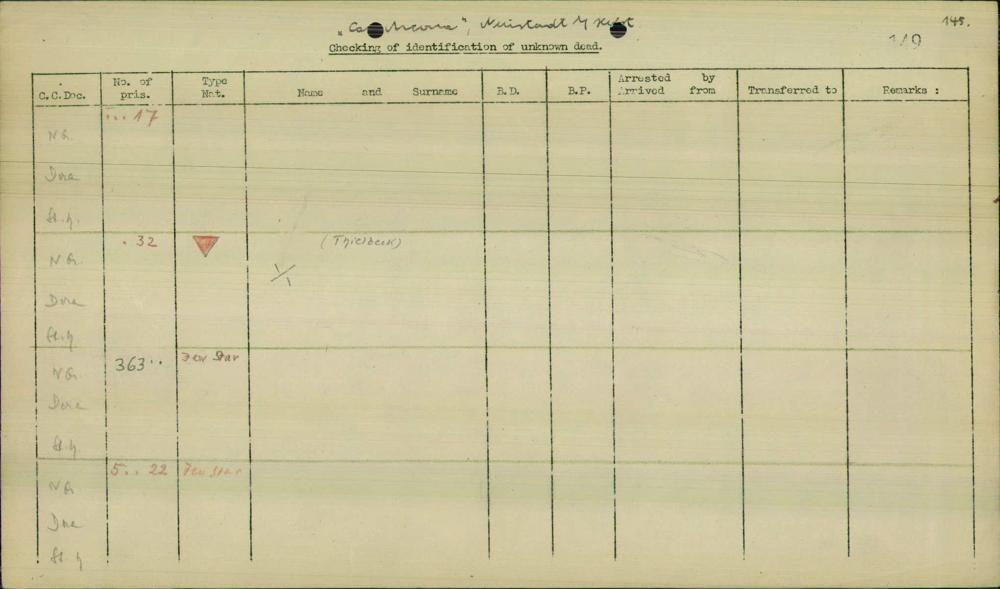 "Cap Arcona", Neustadt 145.
149
Checking of identification of unknown dead.
C.C.Doc. No. of pris. Type Nat. Name and Surname B.D. B.P. Arrested by Arrived from Transferred to Remarks :
... 17
N G.
Dora
St. H.
. 32 (Thielbeck)
N G.
1/1
Dora
St. H.
363 .. Jew Star
N G.
Dora
St. H.
5 .. 22 Jew Star
N G
Dora
St. H